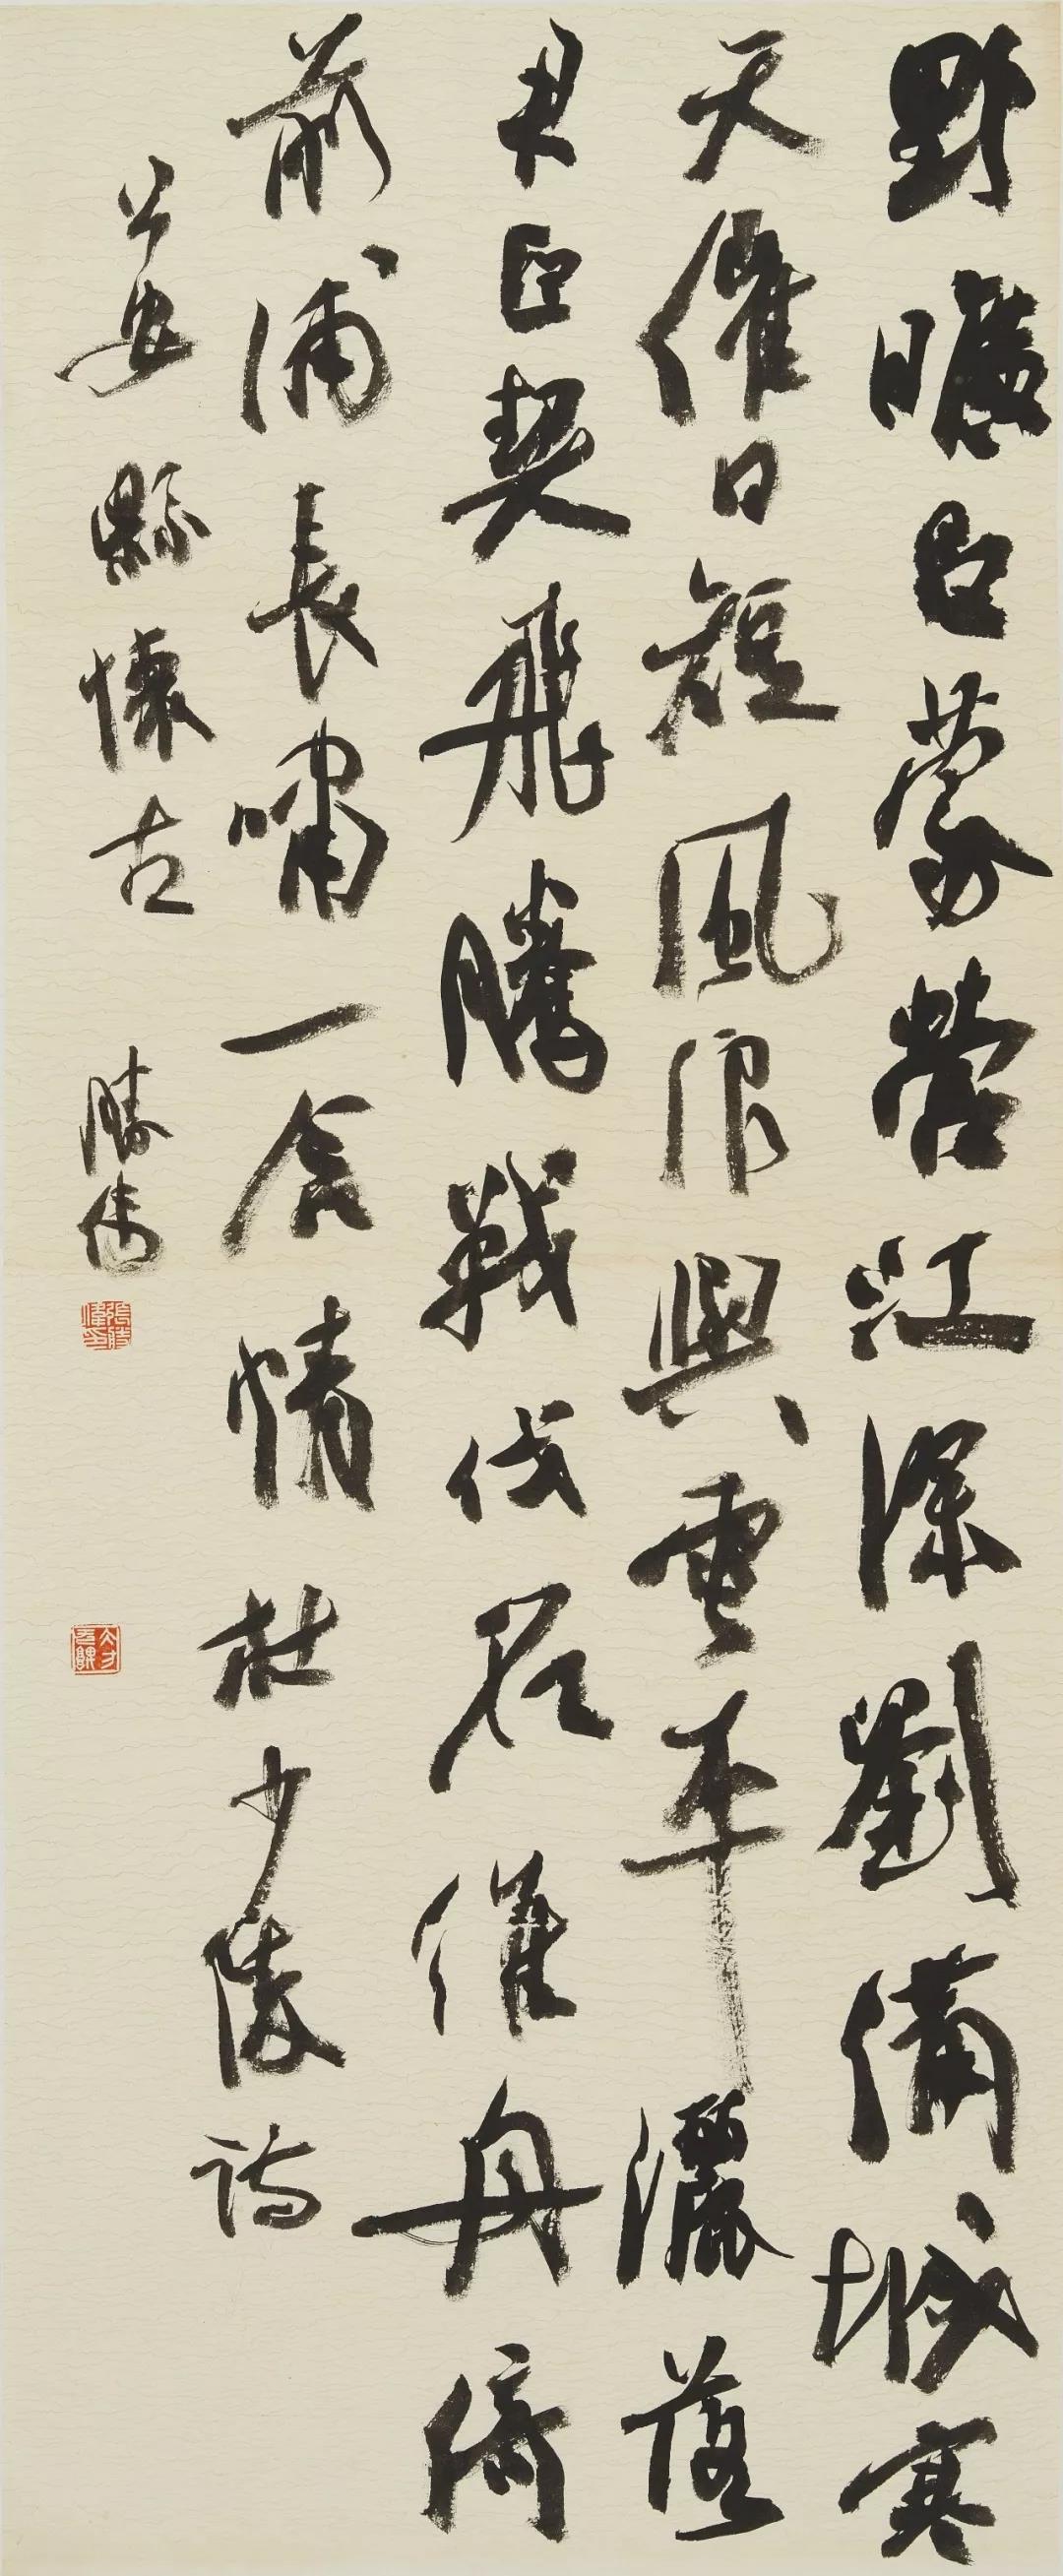 野曠呂蒙營江深劉備城寒
天催日短風浪與雲平灑落
君臣契飛騰戰伐名維舟倚
前浦長嘯一含情杜少陵詩
公安縣懷古 勝偉
張勝偉印